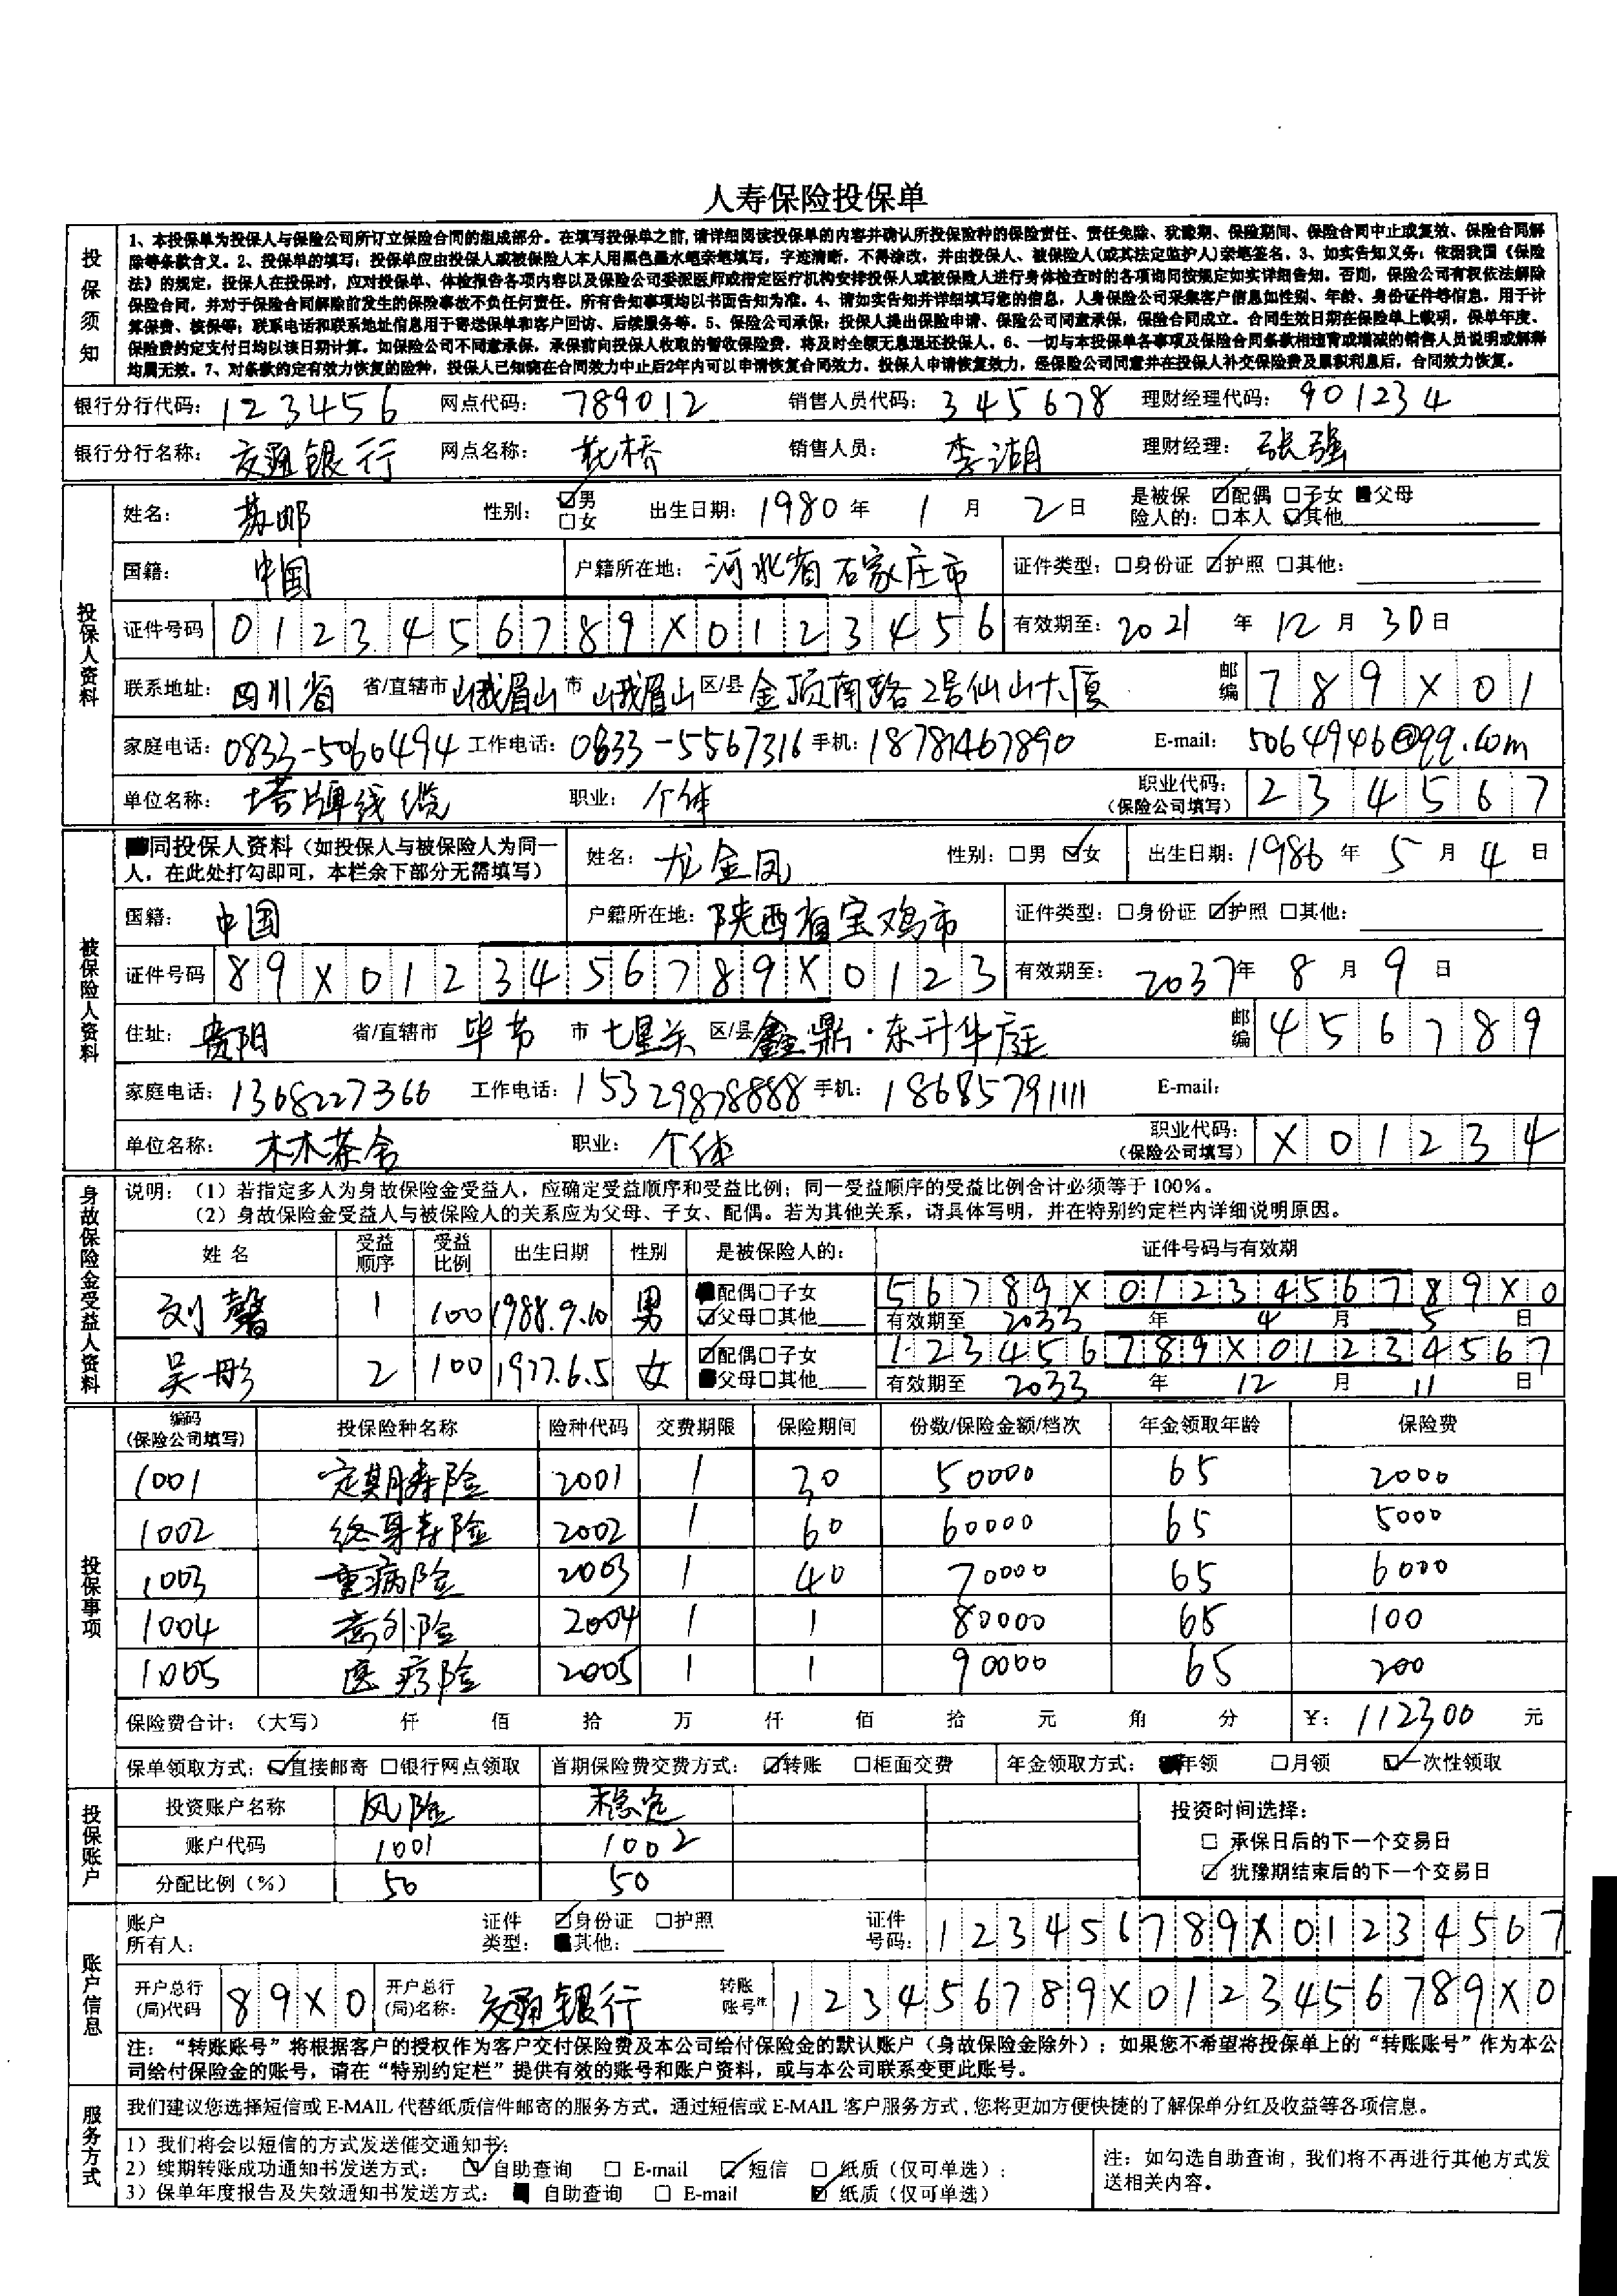 人寿保险投保单
投保须知
1、本投保单为投保人与保险公司所订立保险合同的组成部分。在填写投保单之前,请详细阅读投保单的内容并确认所投保险种的保险责任、责任免除、犹豫期、保险期间、保险合同中止或复效、保险合同解
除等条款含义。2、投保单的填写:投保单应由投保人或被保险人本人用黑色墨水笔亲笔填写,字迹清晰,不得涂改,并由投保人、被保险人(或其法定监护人)亲笔签名。3、如实告知义务:依据我国《保险
法》的规定,投保人在投保时,应对投保单、体检报告各项内容以及保险公司委派医师或指定医疗机构安排投保人或被保险人进行身体检查时的各项询问按规定如实详细告知。否则,保险公司有权依法解除
保险合同,并对于保险合同解除前发生的保险事故不负任何责任。所有告知事项均以书面告知为准。4、请如实告知并详细填写您的信息,人身保险公司采集客户信息如性别、年龄、身份证件等信息,用于计
算保费、核保等;联系电话和联系地址信息用于寄送保单和客户回访、后续服务等。5、保险公司承保:投保人提出保险申请、保险公司同意承保,保险合同成立。合同生效日期在保险单上载明,保单年度、
保险费约定支付日均以该日期计算。如保险公司不同意承保,承保前向投保人收取的暂收保险费,将及时全额无息退还投保人。6、一切与本投保单各事项及保险合同条款相违背或增减的销售人员说明或解释
均属无效。7、对条款约定有效力恢复的险种,投保人已知晓在合同效力中止后2年内可以申请恢复合同效力。投保人申请恢复效力,经保险公司同意并在投保人补交保险费及累积利息后,合同效力恢复。
银行分行代码: 123456 网点代码: 789012 销售人员代码: 345678 理财经理代码: 901234
银行分行名称: 交通银行 网点名称: 花桥 销售人员: 李湖 理财经理: 张强
投保人资料
姓名: 苏邮 性别: ☑男 □女 出生日期: 1980 年 1 月 2 日 是被保险人的: ☑配偶 □子女 ■父母 □本人 ☑其他
国籍: 中国 户籍所在地: 河北省石家庄市 证件类型: □身份证 ☑护照 □其他:
证件号码 0123456789X0123456 有效期至: 2021 年 12 月 30 日
联系地址: 四川省 省/直辖市 峨眉山 市 峨眉山 区/县 金顶南路2号仙山大厦 邮编 789X01
家庭电话: 0833-5060494 工作电话: 0833-5567316 手机: 18781467890 E-mail: 5064946@qq.com
单位名称: 塔牌线缆 职业: 个体 职业代码: (保险公司填写) 234567
被保险人资料
■同投保人资料(如投保人与被保险人为同一人,在此处打勾即可,本栏余下部分无需填写) 姓名: 龙金凤 性别: □男 ☑女 出生日期: 1986 年 5 月 4 日
国籍: 中国 户籍所在地: 陕西省宝鸡市 证件类型: □身份证 ☑护照 □其他:
证件号码 89X0123456789X0123 有效期至: 2037 年 8 月 9 日
住址: 贵阳 省/直辖市 毕节 市 七星关 区/县 鑫鼎·东升华庭 邮编 456789
家庭电话: 1368227366 工作电话: 15329878888 手机: 18685791111 E-mail:
单位名称: 木木茶舍 职业: 个体 职业代码: (保险公司填写) X01234
身故保险金受益人资料
说明:(1)若指定多人为身故保险金受益人,应确定受益顺序和受益比例;同一受益顺序的受益比例合计必须等于100%。
(2)身故保险金受益人与被保险人的关系应为父母、子女、配偶。若为其他关系,请具体写明,并在特别约定栏内详细说明原因。
姓名 受益顺序 受益比例 出生日期 性别 是被保险人的: 证件号码与有效期
刘馨 1 100 1988.9.10 男 ■配偶□子女 ☑父母□其他 56789X0123456789X0
有效期至 2033 年 4 月 5 日
吴彤 2 100 1977.6.5 女 ☑配偶□子女 ■父母□其他 123456789X01234567
有效期至 2033 年 12 月 11 日
投保事项
编码(保险公司填写) 投保险种名称 险种代码 交费期限 保险期间 份数/保险金额/档次 年金领取年龄 保险费
1001 定期寿险 2001 1 30 50000 65 2000
1002 终身寿险 2002 1 60 60000 65 5000
1003 重病险 2003 1 40 70000 65 6000
1004 意外险 2004 1 1 80000 65 100
1005 医疗险 2005 1 1 90000 65 200
保险费合计:(大写) 仟 佰 拾 万 仟 佰 拾 元 角 分 ¥: 112300 元
保单领取方式: ☑直接邮寄 □银行网点领取 首期保险费交费方式: ☑转账 □柜面交费 年金领取方式: ■年领 □月领 ☑一次性领取
投保账户
投资账户名称 风险 稳定 投资时间选择:
账户代码 1001 1002 □ 承保日后的下一个交易日
分配比例(%) 50 50 ☑ 犹豫期结束后的下一个交易日
账户信息
账户所有人: 证件类型: ☑身份证 □护照 ■其他: 证件号码: 123456789X01234567
开户总行(局)代码 89X0 开户总行(局)名称: 交通银行 转账账号注 123456789X0123456789X0
注:“转账账号”将根据客户的授权作为客户交付保险费及本公司给付保险金的默认账户(身故保险金除外);如果您不希望将投保单上的“转账账号”作为本公
司给付保险金的账号,请在“特别约定栏”提供有效的账号和账户资料,或与本公司联系变更此账号。
服务方式
我们建议您选择短信或 E-MAIL 代替纸质信件邮寄的服务方式。通过短信或 E-MAIL 客户服务方式,您将更加方便快捷的了解保单分红及收益等各项信息。
1)我们将会以短信的方式发送催交通知书;
2)续期转账成功通知书发送方式: ☑ 自助查询 □ E-mail ☑ 短信 □ 纸质(仅可单选);
3)保单年度报告及失效通知书发送方式: ■ 自助查询 □ E-mail ☑ 纸质(仅可单选)
注:如勾选自助查询,我们将不再进行其他方式发
送相关内容。